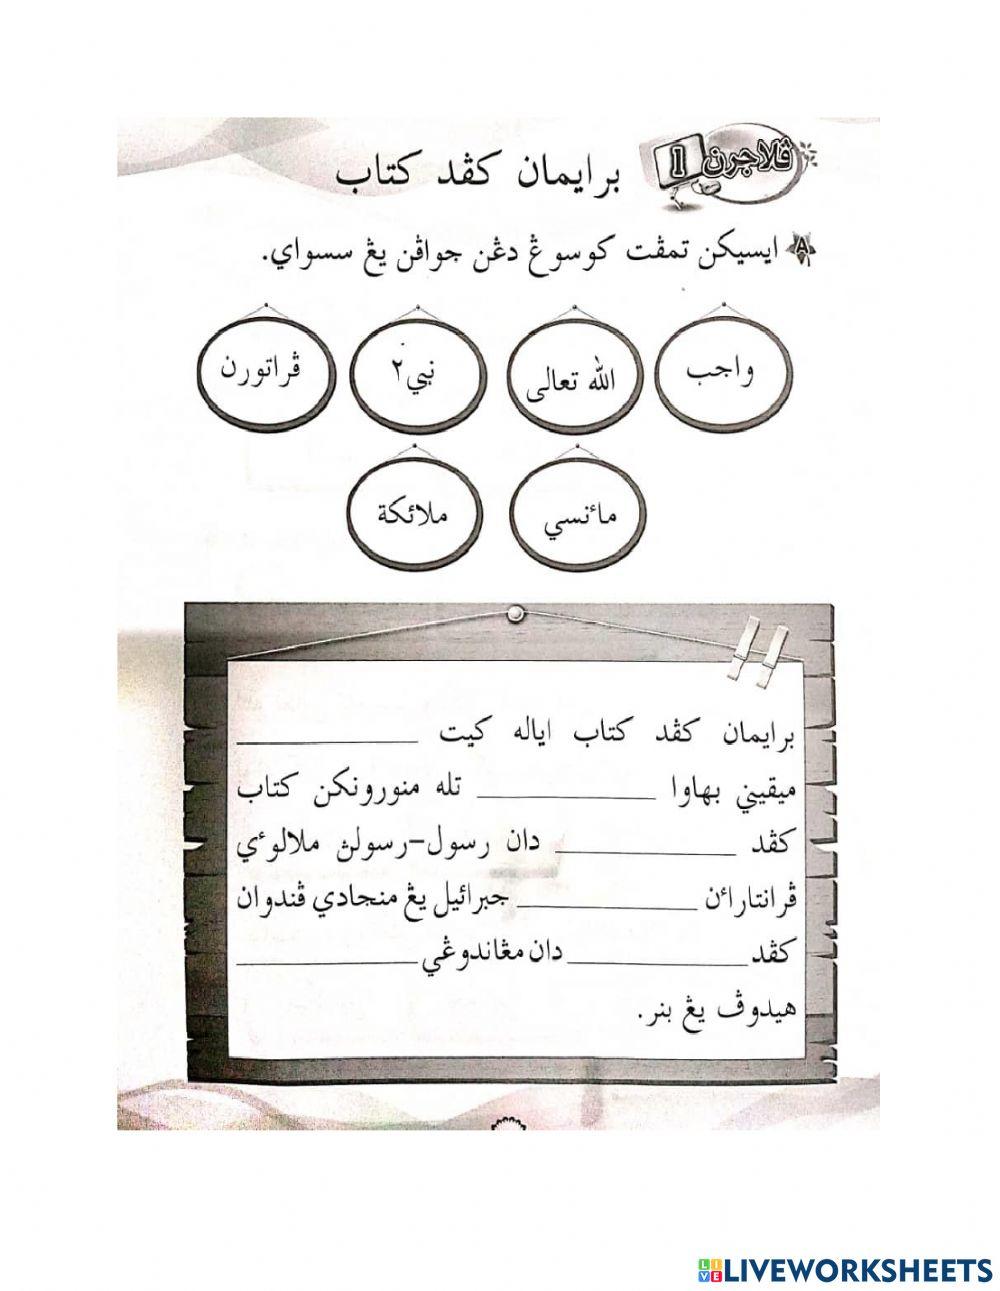 ڤلاجرن 1
برايمان کڤد کتاب
A ايسيکن تمڤت کوسوڠ دڠن جواڤن يڠ سسواي.
واجب
الله تعالى
نبي٢
ڤراتورن
مأنسي
ملائكة
برايمان کڤد کتاب اياله کيت ____________
ميقيني بهاوا ____________ تله منورونکن کتاب
کڤد ____________ دان رسول-رسولڽ ملالوءي
ڤرانتاراءن ____________ جبرائيل يڠ منجادي ڤندوان
کڤد ____________ دان مڠاندوڠي ____________
هيدوڤ يڠ بنر.
LIVE LIVEWORKSHEETS